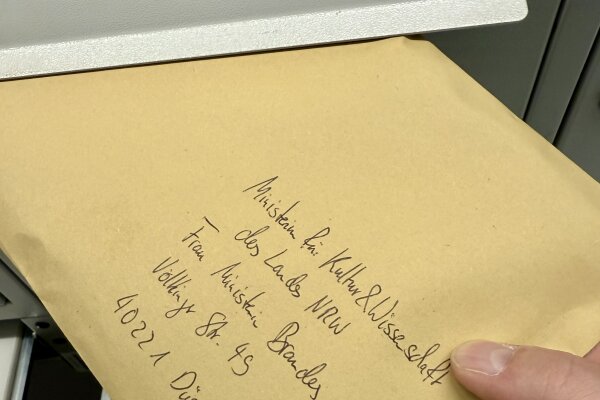 Ministerium für Kultur & Wissenschaft
des Landes NRW
Frau Ministerin Brandes
Völklinger Str. 49
40221 Düs